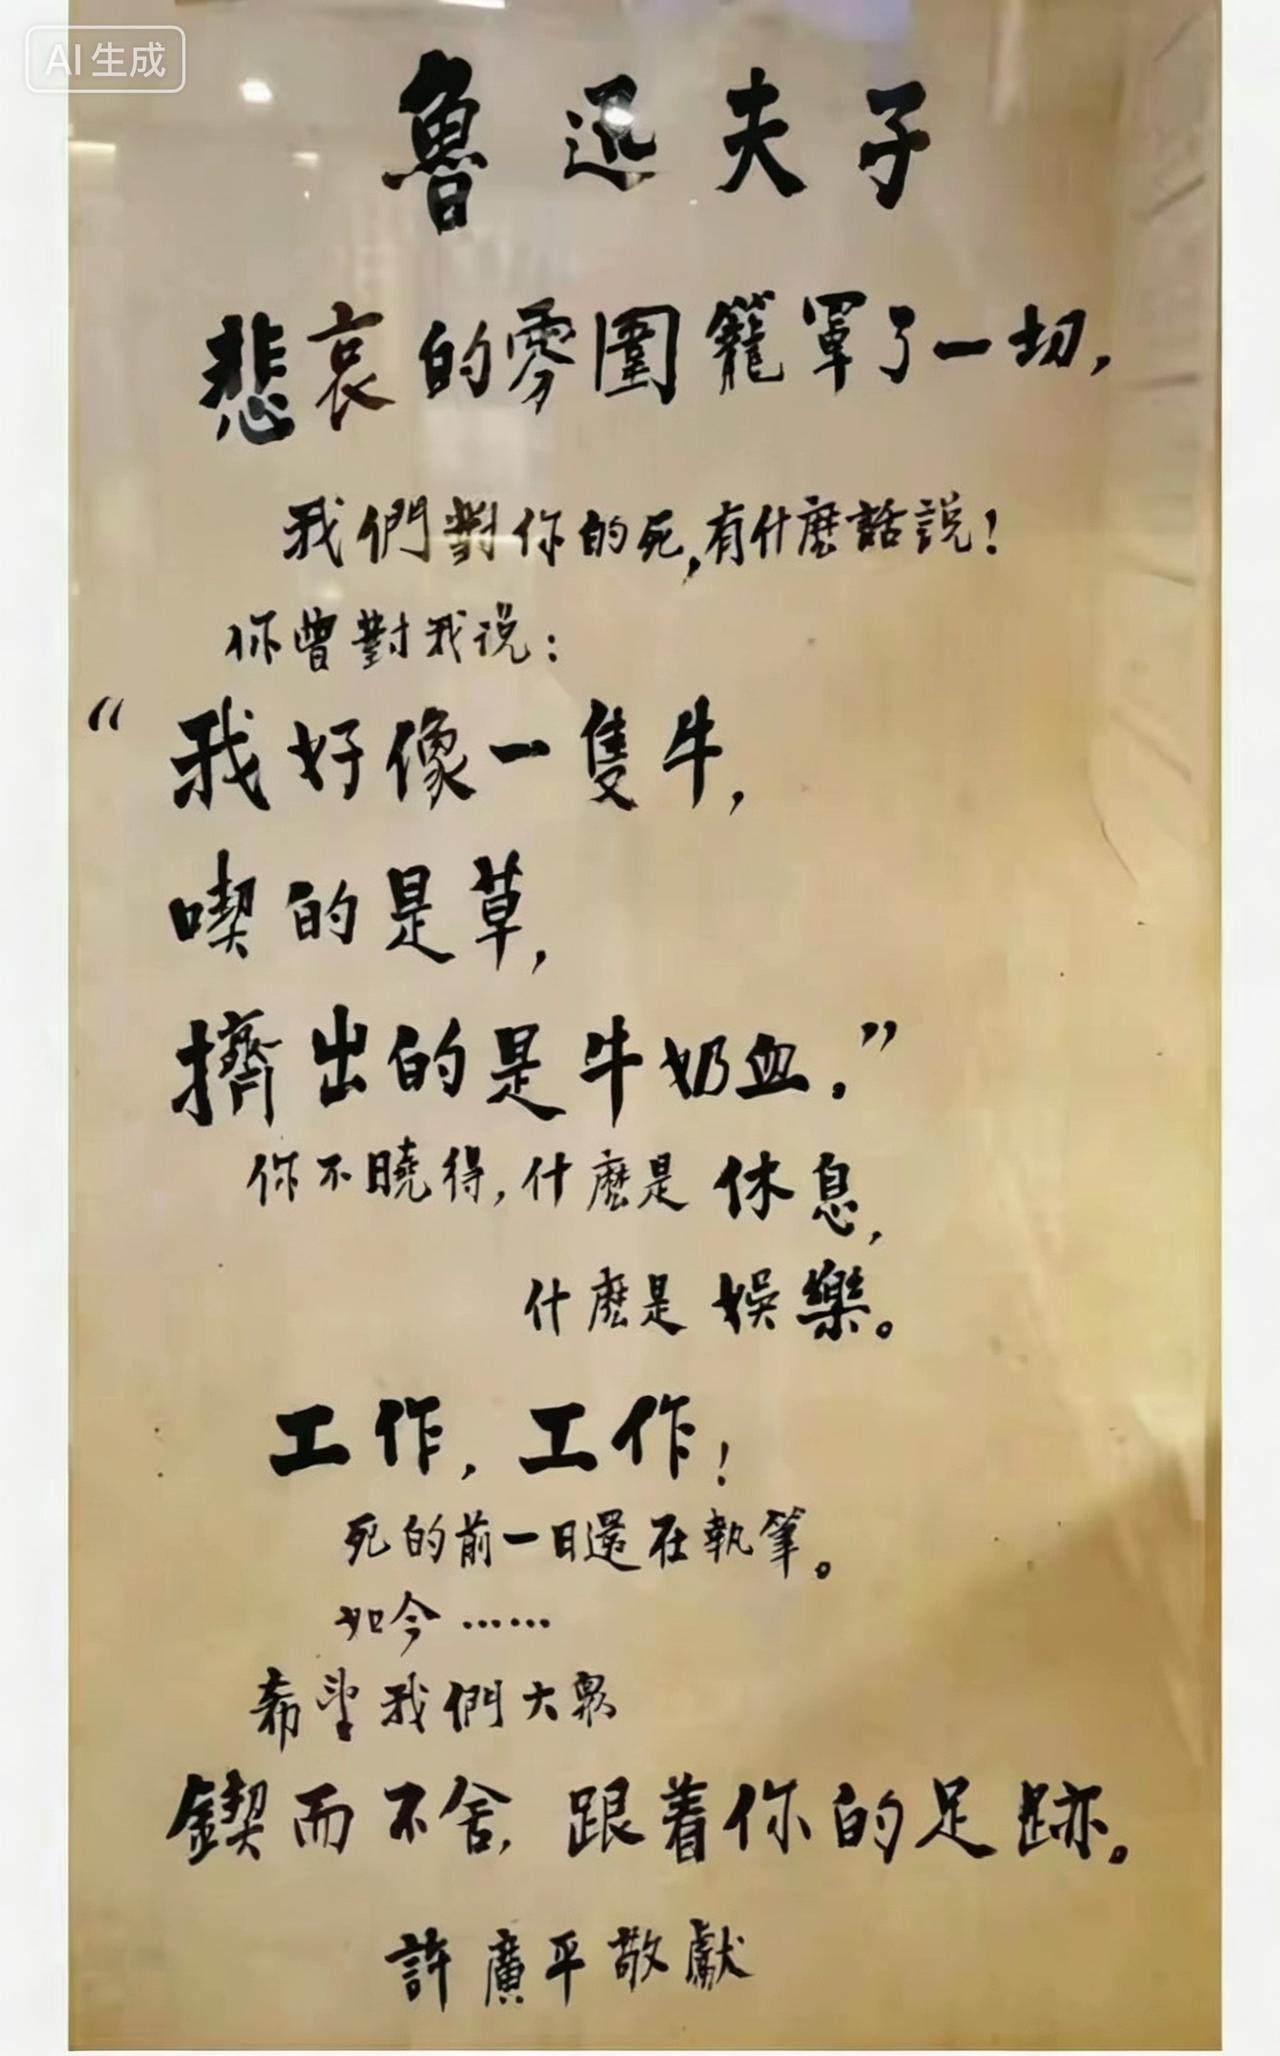 AI生成
魯迅夫子
悲哀的雰圍籠罩了一切,
我們對你的死,有什麽話說!
你曾對我说:
“我好像一隻牛,
喫的是草,
擠出的是牛奶血.”
你不曉得,什麽是休息,
什麽是娛樂。
工作,工作!
死的前一日還在執筆。
如今……
希望我們大眾
鍥而不舍,跟着你的足跡。
許廣平敬獻